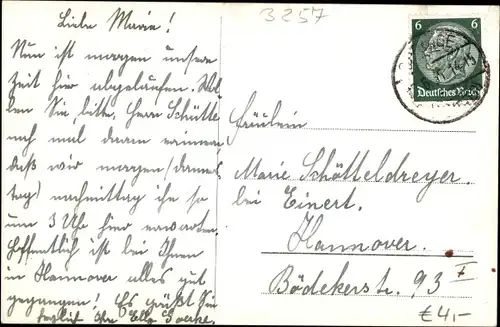 3257
Liebe Marie!
Nun ist morgen unsere
Zeit hier abgelaufen. Wol-
len Sie, bitte, Herrn Schütte
noch mal daran erinnern,
daß wir morgen (donners
tag) nachmittag ihn so
um 3 Uhr hier erwarten.
Hoffentlich ist bei Ihnen
in Hannover alles gut
gegangen! Es grüßt Sie
herzlich Ihre
6 6
Deutsches Reich
Fräulein
Marie Schötteldreyer
bei Einert.
Hannover.
Bödekerstr. 93 I
€ 4,-